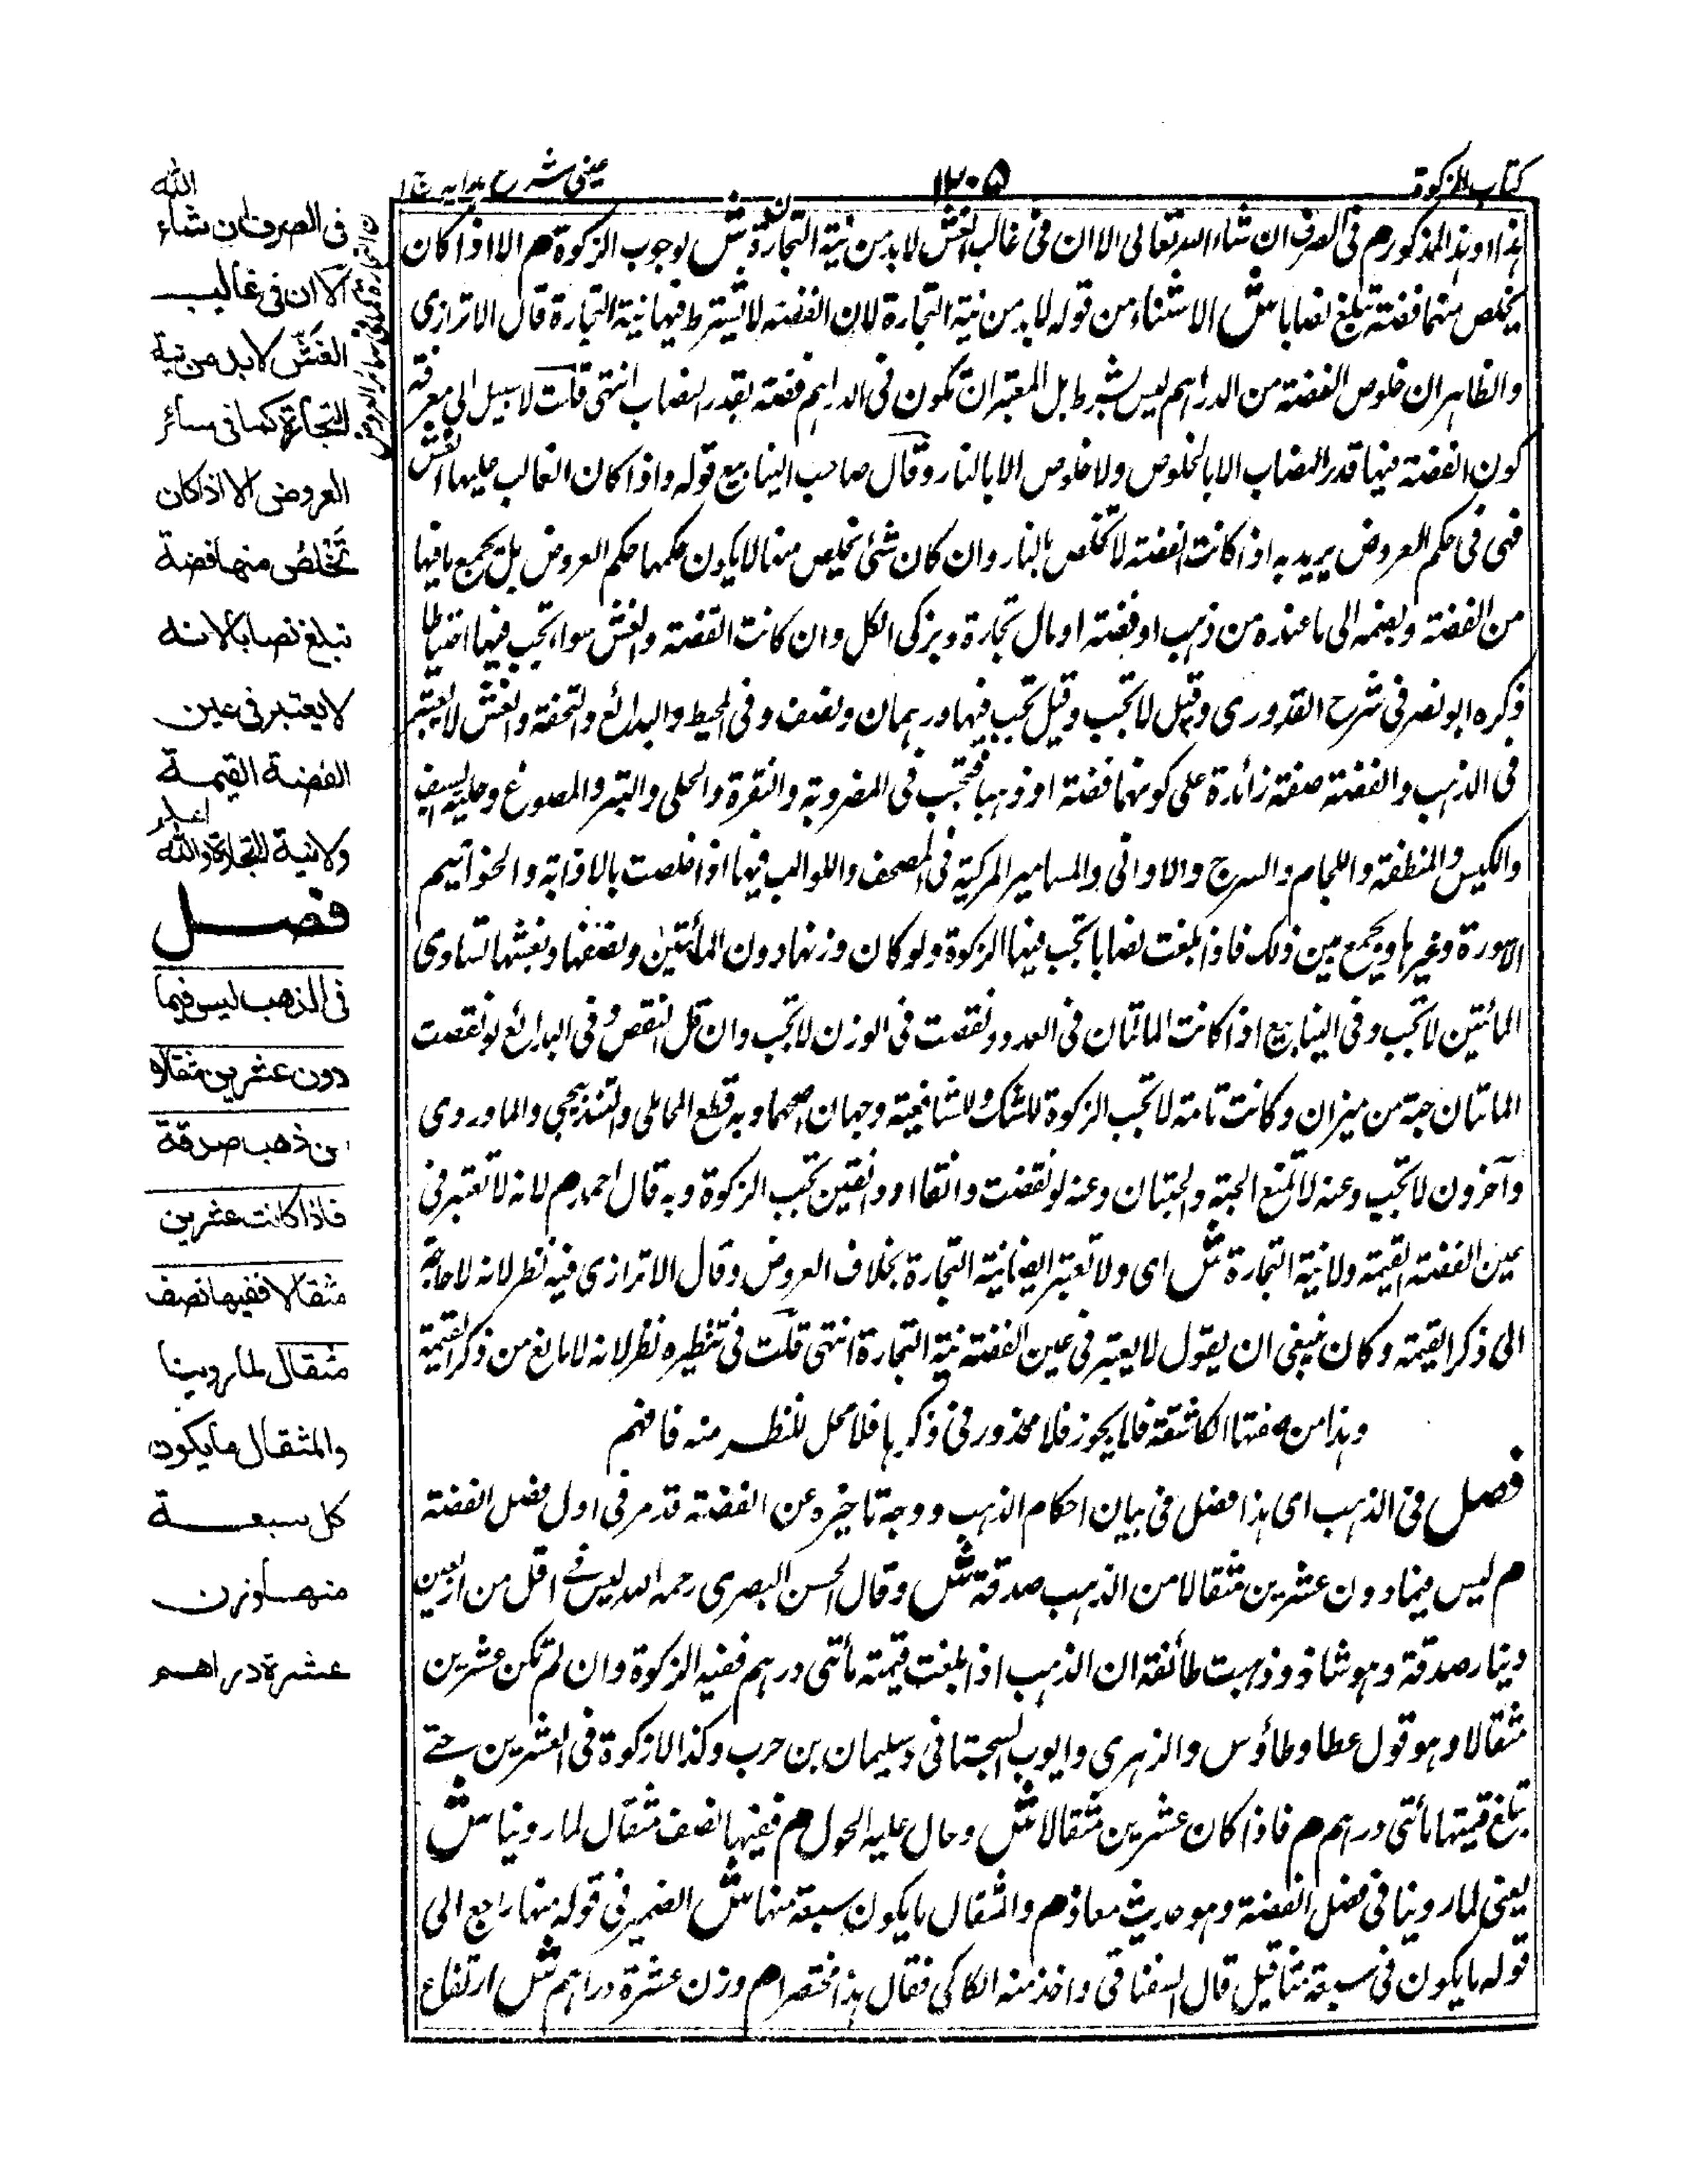 كتاب الزكوة
١٢٠٥
عينى شرح هدايه ج ١
هذا او هذا المذكور م فى الصرف ان شاء الله تعالى الا ان فى غالب الغش لابد من نية التجارة ش لوجوب الزكوة م الا اذا كان
يخلص منها فضة تبلغ نصابا ش الاستثناء من قوله لابد من نية التجارة لان الفضة لا تشترط فيها نية التجارة قال الاترازى
والظاهر ان خلوص الفضة من الدراهم ليس بشرط بل المعتبر ان تكون فى الدراهم فضة بقدر النصاب انتهى قلت لا سبيل الى معرفة
كون الفضة فيها قدر النصاب الا بالخلوص ولا خلوص الا بالنار وقال صاحب الينابيع قوله واذا كان الغالب عليها الغش
فهى فى حكم العروض يريد به اذا كانت الفضة لا تخلص بالنار وان كان شئ يخلص منها لا يكون حكمها حكم العروض بل يجمع ما فيها
من الفضة ويضمه الى ما عنده من ذهب او فضة او مال تجارة ويزكى الكل وان كانت الفضة والغش سواء تجب فيها احتياطا
ذكره ابو نصر فى شرح القدورى وقيل لا تجب وقيل تجب فيها درهمان ونصف وفى المحيط والبدائع والتحفة والغش لا يعتبر
فى الذهب والفضة صفة زائدة على كونهما فضة او ذهبا فتجب فى المضروبة والنقرة والحلى والتبر والمصوغ وحلية السيف
والكيس والمنطقة واللجام والسرج والاوانى والمسامير المركبة فى المصحف واللوالب فيها اذا خلصت بالاذابة والخواتيم
الاسورة وغيرها ويجمع بين ذلك فاذا بلغت نصابا تجب فيها الزكوة ولو كان وزنها دون المأتين وبصنعتها وبغشها تساوى
المائتين لا تجب وفى الينابيع اذا كانت المائتان فى العدد ونقصت فى الوزن لا تجب وان قل النقص وفى البدائع لو نقصت
المائتان حبة من ميزان وكانت تامة لا تجب الزكوة للشك وللشافعية وجهان اصحهما وبه قطع المحاملى والبندنيجى والماوردى
وآخرون لا تجب وعنه لا تمنع الحبة والحبتان وعنه لو نقصت دانقا او دانقين تجب الزكوة وبه قال احمد م لانه لا تعتبر فى
عين الفضة القيمة ولا نية التجارة ش اى ولا تعتبر ايضا نية التجارة بخلاف العروض وقال الاترازى فيه نظر لانه لا حاجة
الى ذكر القيمة وكان ينبغى ان يقول لا يعتبر فى عين الفضة نية التجارة انتهى قلت فى تنظيره نظر لانه لا مانع من ذكر القيمة
وهذا من صفتها الكاشفة فلا يجوز فلا محذور فى ذكرها فلا محل للنظر منه فافهم
فصل فى الذهب اى هذا فصل فى بيان احكام الذهب ووجه تاخيره عن الفضة قد مر فى اول فصل الفضة
م ليس فيما دون عشرين مثقالا من الذهب صدقة ش وقال الحسن البصرى رحمه الله ليس فى اقل من اربعين
دينار صدقة وهو شاذ وذهبت طائفة ان الذهب اذا بلغت قيمته مأتى درهم ففيه الزكوة وان لم تكن عشرين
مثقالا وهو قول عطا وطاؤس والزهرى وايوب السجستانى وسليمان بن حرب وكذا لا زكوة فى العشرين حتى
تبلغ قيمتها مأتى درهم م فاذا كان عشرين مثقالا ش وحال عليه الحول م ففيها نصف مثقال لما روينا ش
يعنى لما روينا فى فصل الفضة وهو حديث معاذ م والمثقال ما يكون سبعة منها ش الضمير فى قوله منها راجع الى
قوله ما يكون فى سبعة مثاقيل قال السغناقى واخذ منه الكاكى فقال هذا مختصر م وزن عشرة دراهم ش ارتفاع
فى الصرف ان شاء الله
الا ان فى غالب
الغش لابد من نية
التجارة كما فى سائر
العروض الا اذا كان
تخلص منها فضة
تبلغ نصابا لانه
لا يعتبر فى عين
الفضة القيمة
ولا نية التجارة والله اعلم
فصل
فى الذهب ليس فيما
دون عشرين مثقالا
من ذهب صدقة
فاذا كانت عشرين
مثقالا ففيها نصف
مثقال لما روينا
والمثقال ما يكون
كل سبعة
منها وزن
عشرة دراهم